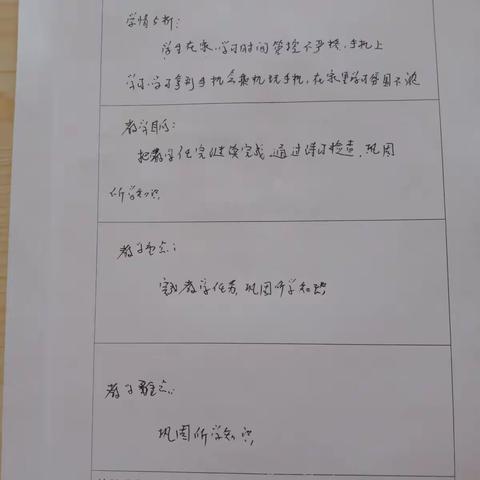 学情分析:
学生在家学习时间管控不严格,手机上
学习,学习拿到手机会趁机玩手机,在家里学习氛围不浓
教学目标:
把教学任务继续完成,通过练习检查,巩固
所学知识
教学重点:
完成教学任务,巩固所学知识
教学难点:
巩固所学知识